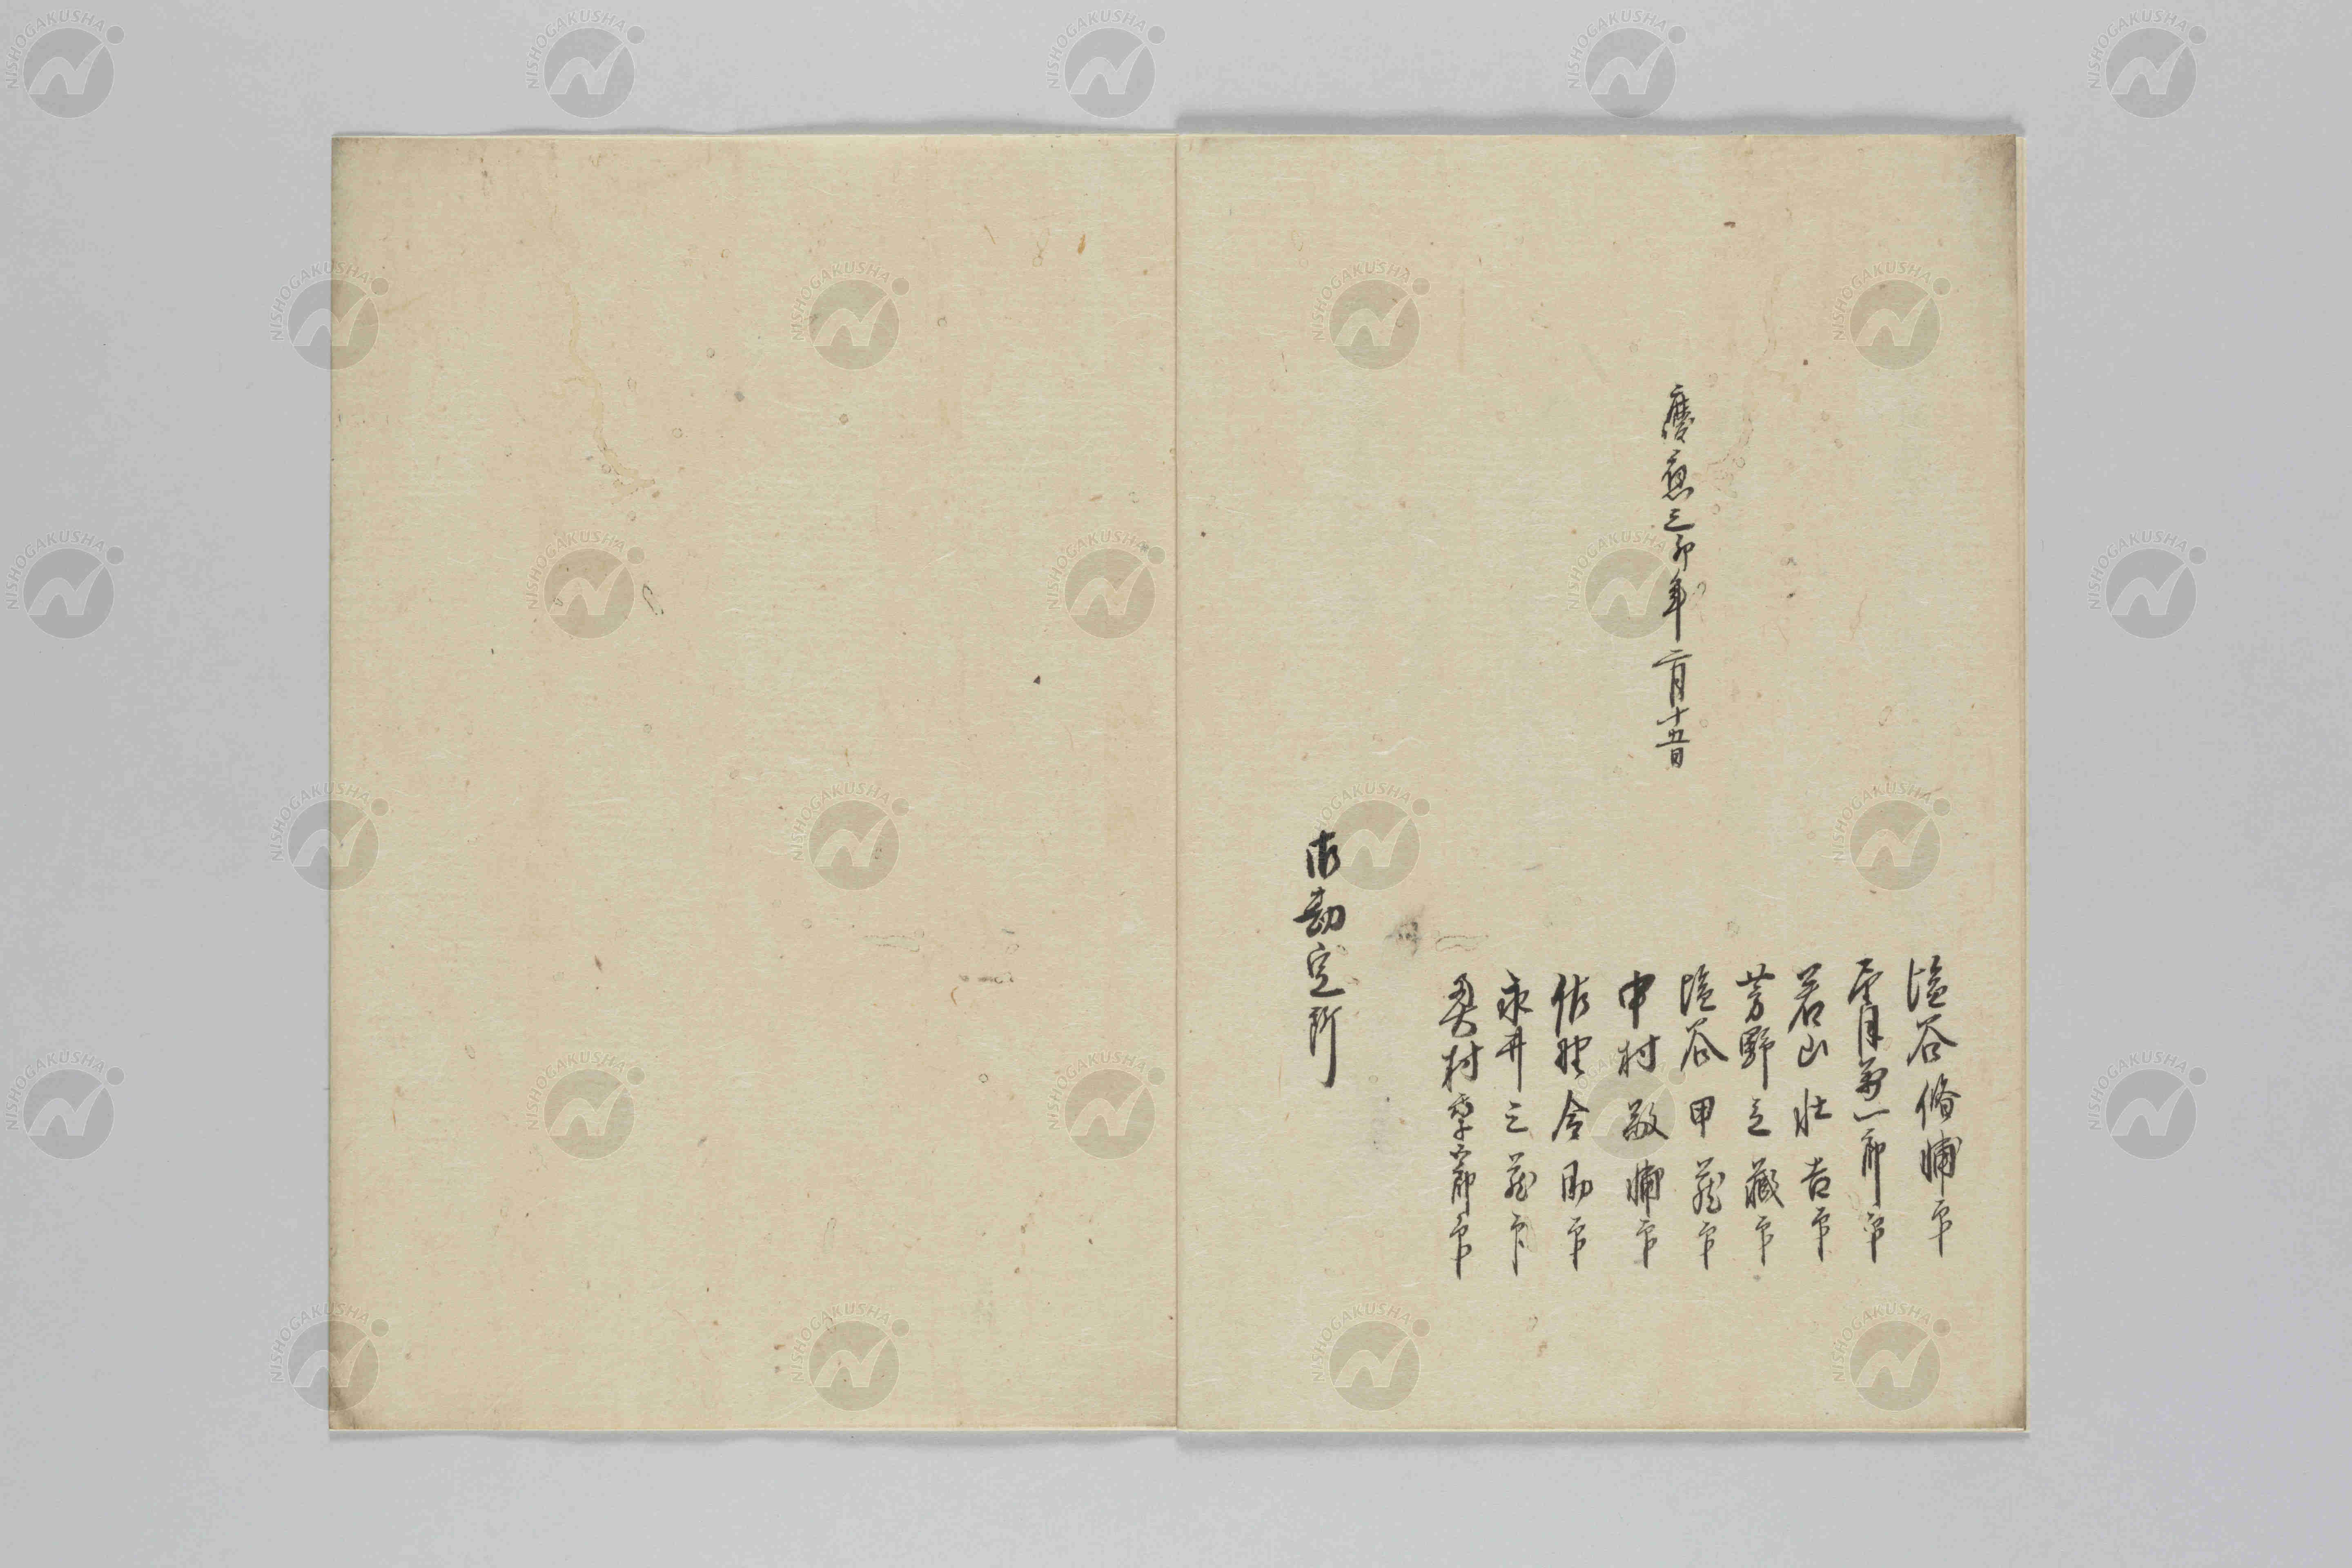 慶應三卯年二月十五日
塩谷脩輔印
望月萬一郎印
若山壮吉印
芳野立蔵印
塩谷甲蔵印
中村敬輔印
佐野令助印
永井三蔵印
奥村季六郎印
御勘定所
NISHOGAKUSHA